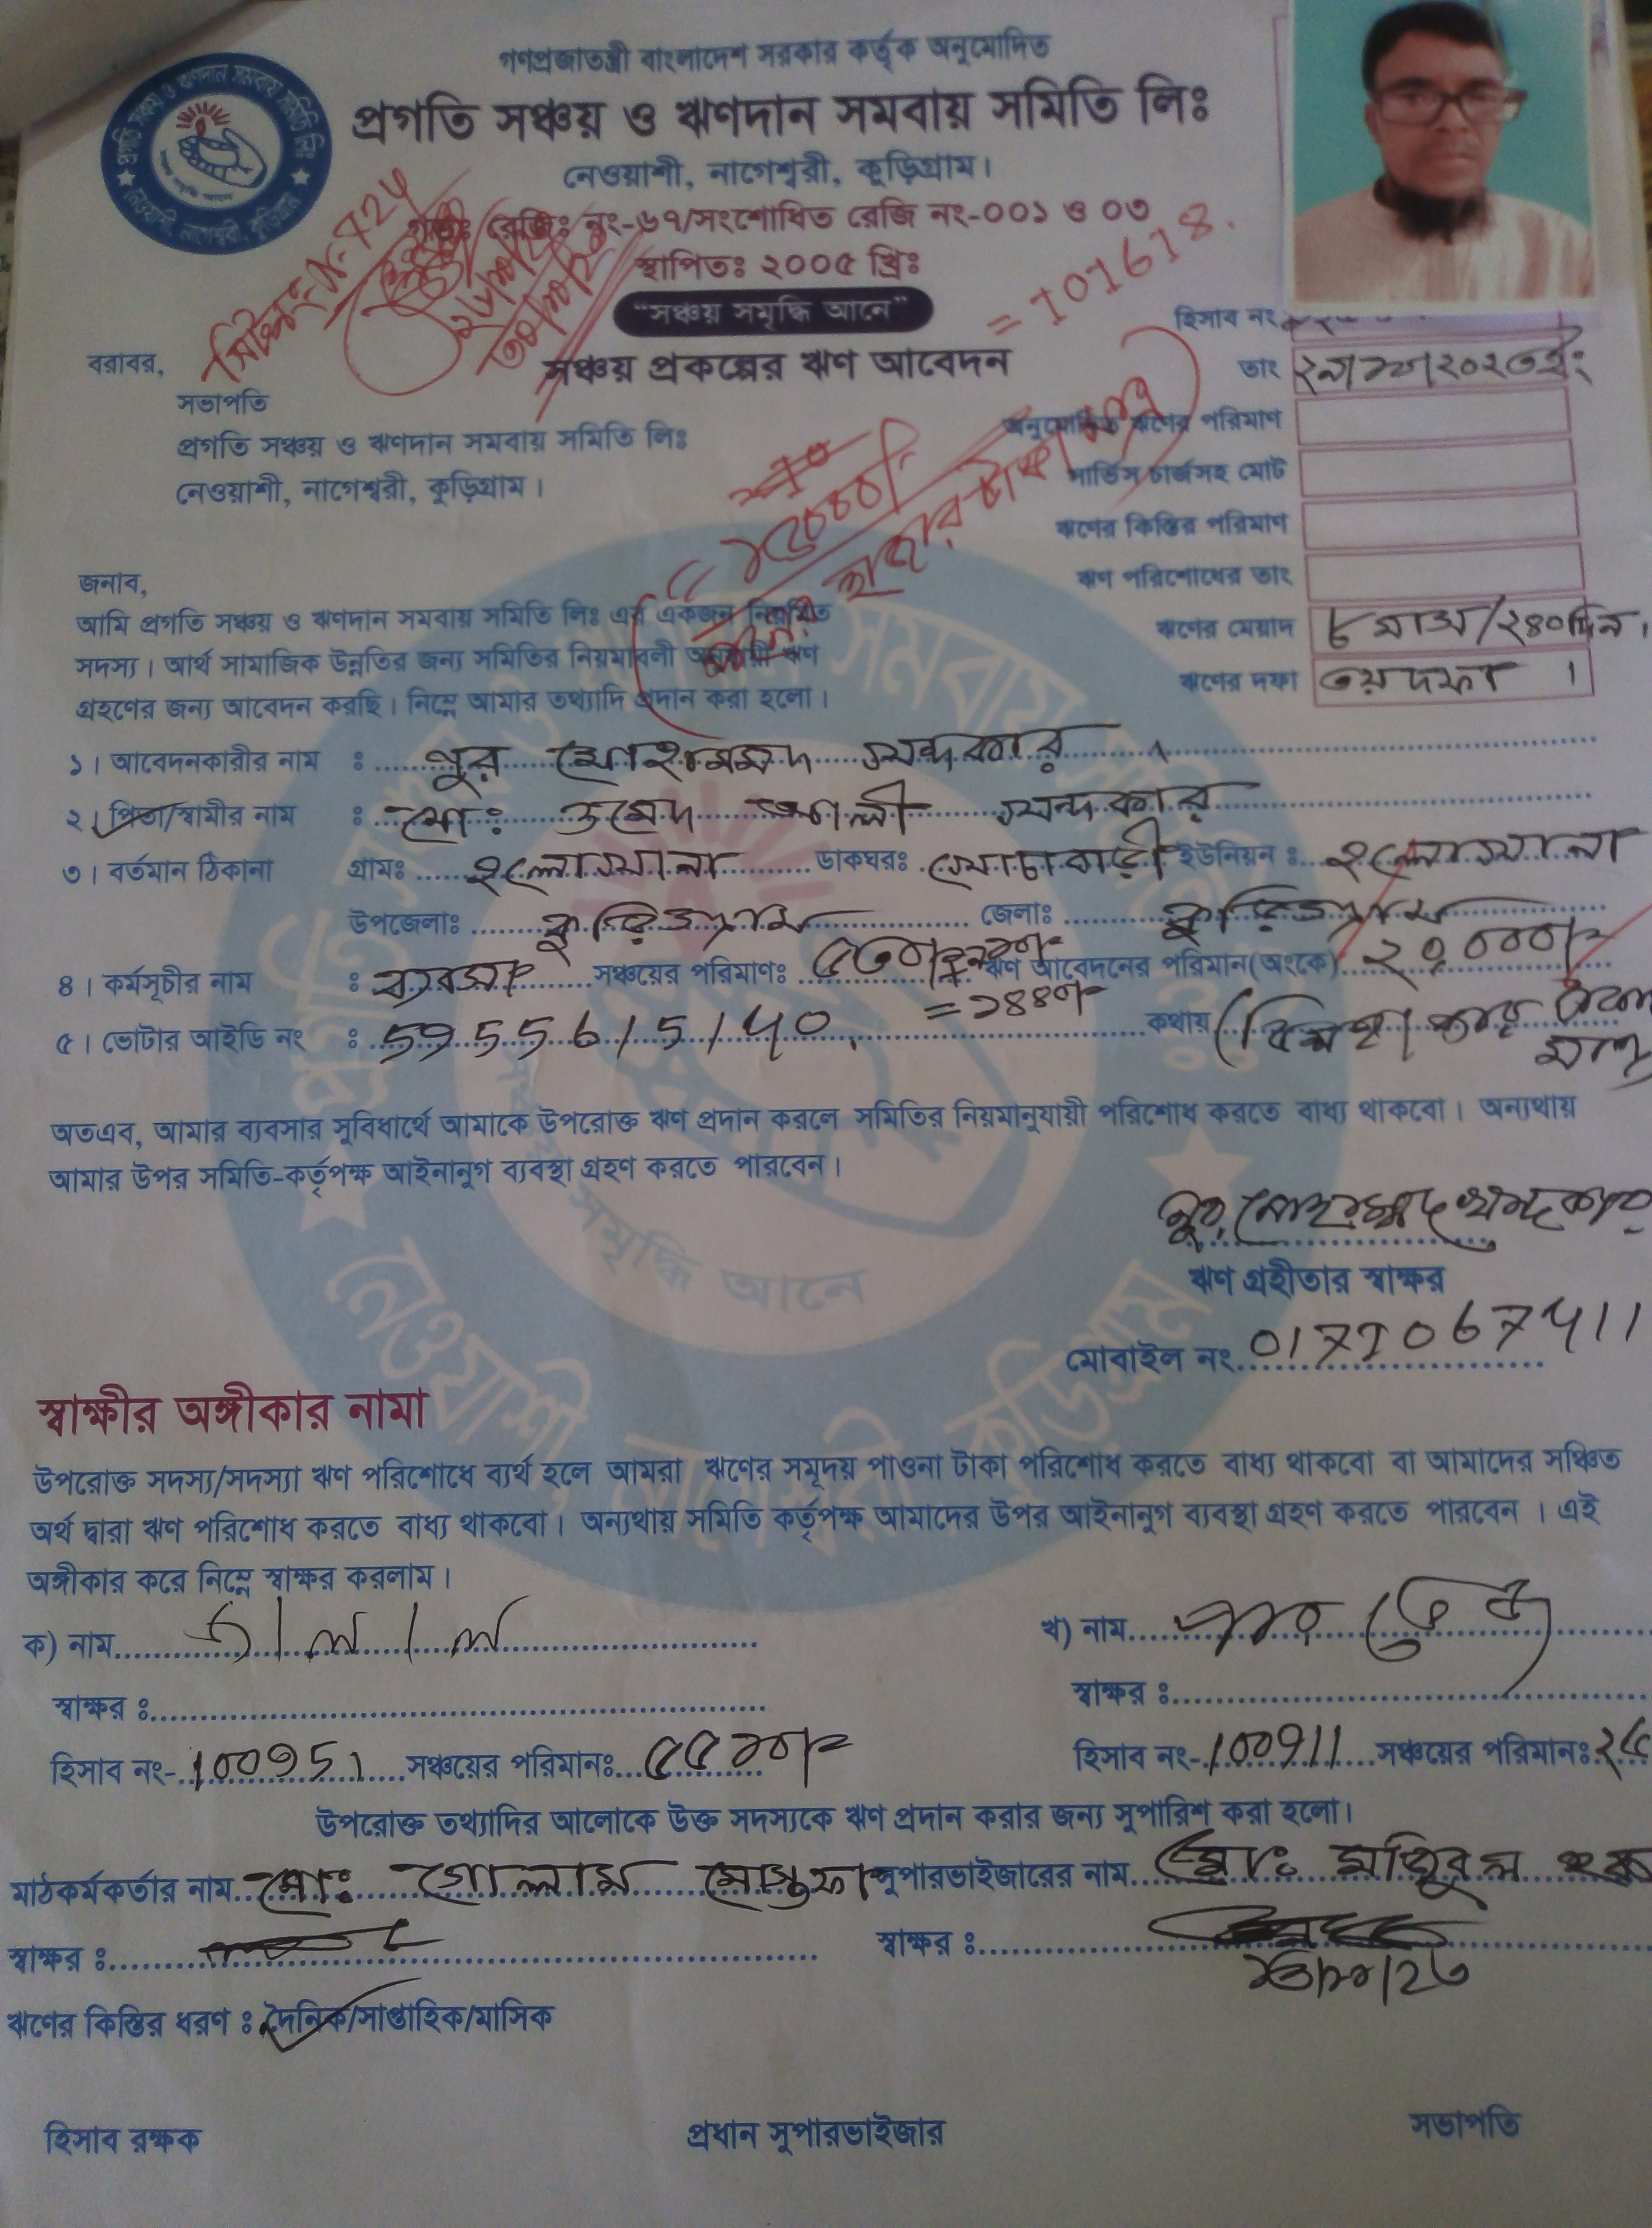 গণপ্রজাতন্ত্রী বাংলাদেশ সরকার কর্তৃক অনুমোদিত
প্রগতি সঞ্চয় ও ঋণদান সমবায় সমিতি লিঃ
নেওয়াশী, নাগেশ্বরী, কুড়িগ্রাম।
গভঃ রেজিঃ নং-৬৭/সংশোধিত রেজি নং-০০১ ও ০৩
স্থাপিতঃ ২০০৫ খ্রিঃ
= 101618.
"সঞ্চয় সমৃদ্ধি আনে"
হিসাব নং
সঞ্চয় প্রকল্পের ঋণ আবেদন
তাং
বরাবর,
সভাপতি
প্রগতি সঞ্চয় ও ঋণদান সমবায় সমিতি লিঃ
নেওয়াশী, নাগেশ্বরী, কুড়িগ্রাম।
অনুমোদিত ঋণের পরিমাণ
সার্ভিস চার্জসহ মোট
ঋণের কিস্তির পরিমাণ
ঋণ পরিশোধের তাং
ঋণের মেয়াদ ৮ মাস/২৪০দিন।
ঋণের দফা ৩য় দফা।
জনাব,
আমি প্রগতি সঞ্চয় ও ঋণদান সমবায় সমিতি লিঃ এর একজন নিয়মিত
সদস্য। আর্থ সামাজিক উন্নতির জন্য সমিতির নিয়মাবলী অনুযায়ী ঋণ
গ্রহণের জন্য আবেদন করছি। নিম্নে আমার তথ্যাদি প্রদান করা হলো।
১। আবেদনকারীর নাম : নুর মোহাম্মদ খন্দকার
২। পিতা/স্বামীর নাম : মোঃ ওমেদ আলী খন্দকার
৩। বর্তমান ঠিকানা গ্রামঃ হলোখানা ডাকঘরঃ ইউনিয়ন : হলোখানা
উপজেলাঃ কুড়িগ্রাম জেলাঃ কুড়িগ্রাম
৪। কর্মসূচীর নাম : ব্যবসা সঞ্চয়ের পরিমাণঃ ঋণ আবেদনের পরিমান(অংকে) ২০,০০০/=
৫। ভোটার আইডি নং : 5955615140 কথায় (বিশ হাজার টাকা মাত্র
অতএব, আমার ব্যবসার সুবিধার্থে আমাকে উপরোক্ত ঋণ প্রদান করলে সমিতির নিয়মানুযায়ী পরিশোধ করতে বাধ্য থাকবো। অন্যথায়
আমার উপর সমিতি-কর্তৃপক্ষ আইনানুগ ব্যবস্থা গ্রহণ করতে পারবেন।
নুর মোহাম্মদ খন্দকার
ঋণ গ্রহীতার স্বাক্ষর
মোবাইল নং
স্বাক্ষীর অঙ্গীকার নামা
উপরোক্ত সদস্য/সদস্যা ঋণ পরিশোধে ব্যর্থ হলে আমরা ঋণের সমূদয় পাওনা টাকা পরিশোধ করতে বাধ্য থাকবো বা আমাদের সঞ্চিত
অর্থ দ্বারা ঋণ পরিশোধ করতে বাধ্য থাকবো। অন্যথায় সমিতি কর্তৃপক্ষ আমাদের উপর আইনানুগ ব্যবস্থা গ্রহণ করতে পারবেন । এই
অঙ্গীকার করে নিম্নে স্বাক্ষর করলাম।
ক) নাম
খ) নাম
স্বাক্ষর :
স্বাক্ষর :
হিসাব নং- 100951 সঞ্চয়ের পরিমানঃ
হিসাব নং- 100911 সঞ্চয়ের পরিমানঃ
উপরোক্ত তথ্যাদির আলোকে উক্ত সদস্যকে ঋণ প্রদান করার জন্য সুপারিশ করা হলো।
মাঠকর্মকর্তার নাম মোঃ গোলাম মোস্তফা সুপারভাইজারের নাম মোঃ
স্বাক্ষর :
স্বাক্ষর :
ঋণের কিস্তির ধরণ : দৈনিক/সাপ্তাহিক/মাসিক
হিসাব রক্ষক
প্রধান সুপারভাইজার
সভাপতি